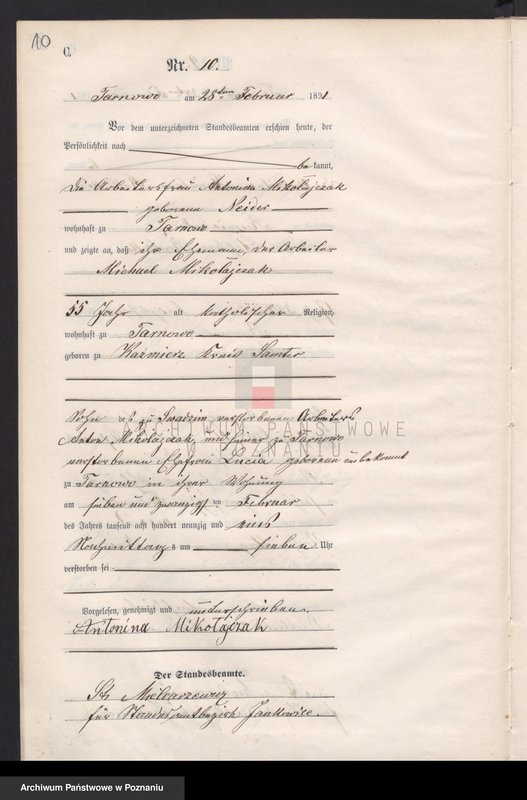 10
C.
Nr. 10.
Tarnowo am 28ten Februar 1891
Vor dem unterzeichneten Standesbeamten erschien heute, der
Persönlichkeit nach
bekannt,
die Arbeitersfrau Antonina Mikołajczak
geborene Neider
wohnhaft zu Tarnowo
und zeigte an, daß ihr Ehemann, der Arbeiter
Michael Mikołajczak
55 Jahr alt katholischer Religion,
wohnhaft zu Tarnowo
geboren zu Kazmierz Kreis Samter
Sohn des zu Swadzim verstorbenen Arbeiters
Anton Mikołajczak und seiner zu Tarnowo
verstorbenen Ehefrau Lucia geborenen unbekannt
zu Tarnowo in ihrer Wohnung
am sieben und zwanzigsten Februar
des Jahres tausend acht hundert neunzig und eins
Nachmittags um sieben Uhr
verstorben sei.
Vorgelesen, genehmigt und unterschrieben.
Antonina Mikołajczak
Der Standesbeamte.
für Standesamtbezirk Jankowice.
ARCHIWUM PAŃSTWOWE
W POZNANIU
Archiwum Państwowe w Poznaniu